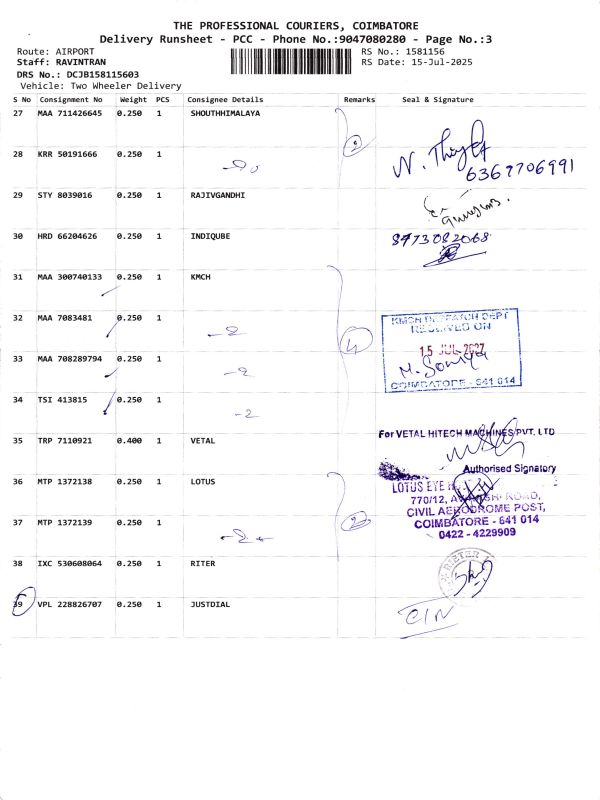 THE PROFESSIONAL COURIERS, COIMBATORE
Delivery Runsheet - PCC - Phone No.:9047080280 - Page No.:3
Route: AIRPORT RS No.: 1581156
Staff: RAVINTRAN RS Date: 15-Jul-2025
DRS No.: DCJB158115603
Vehicle: Two Wheeler Delivery
S No Consignment No Weight PCS Consignee Details Remarks Seal & Signature
27 MAA 711426645 0.250 1 SHOUTHHIMALAYA
28 KRR 50191666 0.250 1
2
6367706991
29 STY 8039016 0.250 1 RAJIVGANDHI
30 HRD 66204626 0.250 1 INDIQUBE 8973082068
31 MAA 300740133 0.250 1 KMCH
32 MAA 7083481 0.250 1 -2
KMCH DISPATCH DEPT
RECEIVED ON
4
33 MAA 708289794 0.250 1 -2
15 JUL
M. Somya
COIMBATORE - 641 014
34 TSI 413815 0.250 1 -2
35 TRP 7110921 0.400 1 VETAL
For VETAL HITECH MACHINES PVT. LTD
Authorised Signatory
36 MTP 1372138 0.250 1 LOTUS
LOTUS EYE
770/12, ROAD,
CIVIL AERODROME POST,
37 MTP 1372139 0.250 1 2
COIMBATORE - 641 014
0422 - 4229909
38 IXC 530608064 0.250 1 RITER
RIETER
39 VPL 228826707 0.250 1 JUSTDIAL